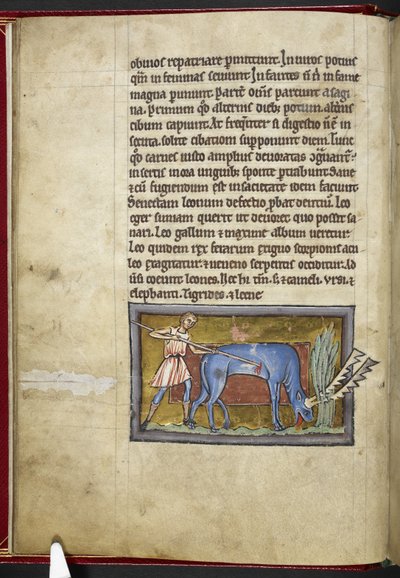 obuios repatriare p̄mittunt. In uiros potius
qm̄ in feminas seuiunt. Infantes n̄ n̄ in fame
magna ꝑimunt. Parte om̄s parcunt a sagi
na. Primum qď alternis dieb; potum. alt̄nis
cibum capiunt. At freq̄nter si digestio n̄ ē in
secuta. solite cibationi supponunt diem. Tunc
qď carnes iusto amplius deuoratas
insertis in ora unguib; sponte Sane
⁊ cū fugiendum est in sacietate idem faciunt
Senectam leonum defectio ꝓbat dentiū. Leo
eger simiam querit ut deuoret quo possit sa
nari. Leo gallum ⁊ maxime album ueretur.
Leo quidem rex ferarum exiguo scorpionis acu
leo exagitatur. ⁊ ueneno serpentis occiditur. Ad
coeunt leones. Nec hi tm̄. s; ⁊ cameli. ursi. ⁊
elephanti. Tigrides. ⁊ leene